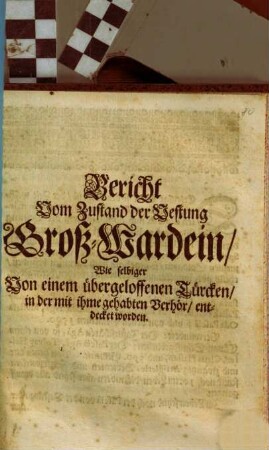 Bericht
Vom Zustand der Vestung
Groß-Wardein/
Wie selbiger
Von einem übergeloffenen Türcken/
in der mit ihme gehabten Verhör/ ent-
decket worden.